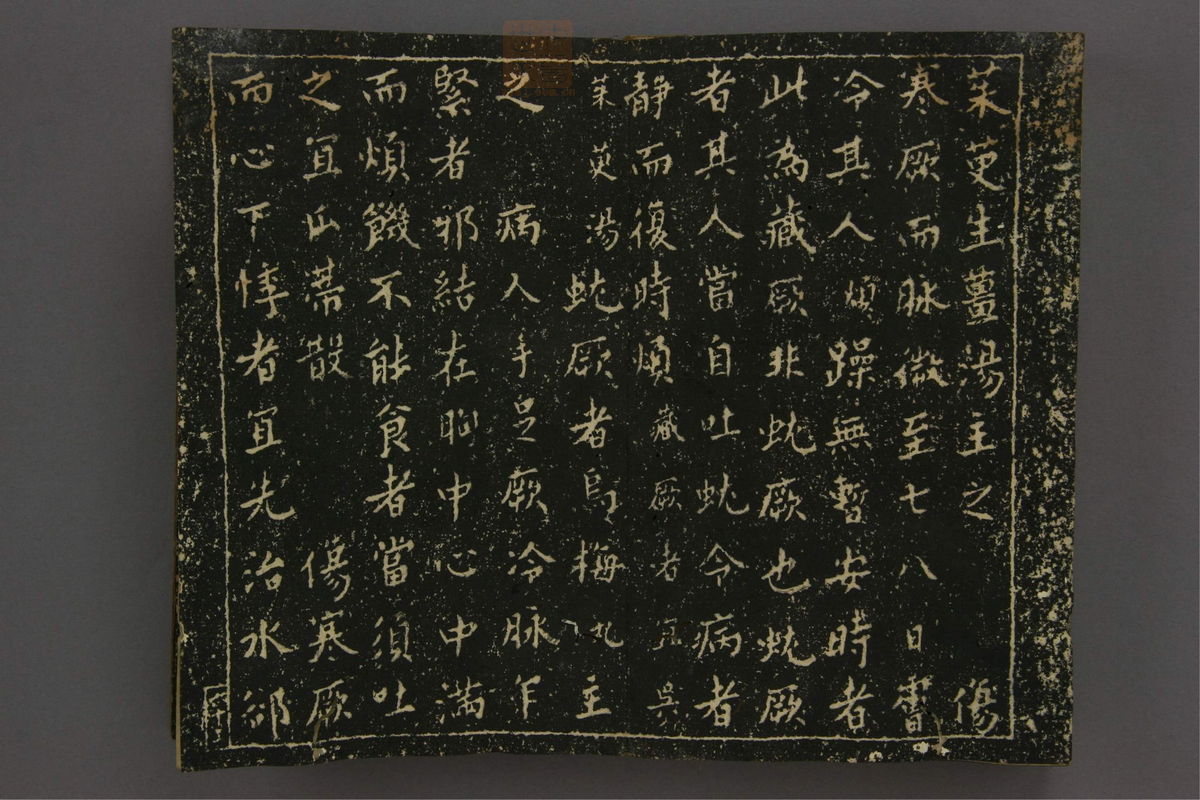 茱萸生薑湯主之 傷
寒厥而脉微至七八日膚
冷其人煩躁無暫安時者
此為藏厥非蚘厥也蚘厥
者其人當自吐蚘令病者
靜而復時煩藏厥者宜吳
茱萸湯蚘厥者烏梅丸主
之 病人手足厥冷脉乍
緊者邪結在胷中心中滿
而煩饑不能食者當須吐
之宜瓜蒂散 傷寒厥
而心下悸者宜先治水卻